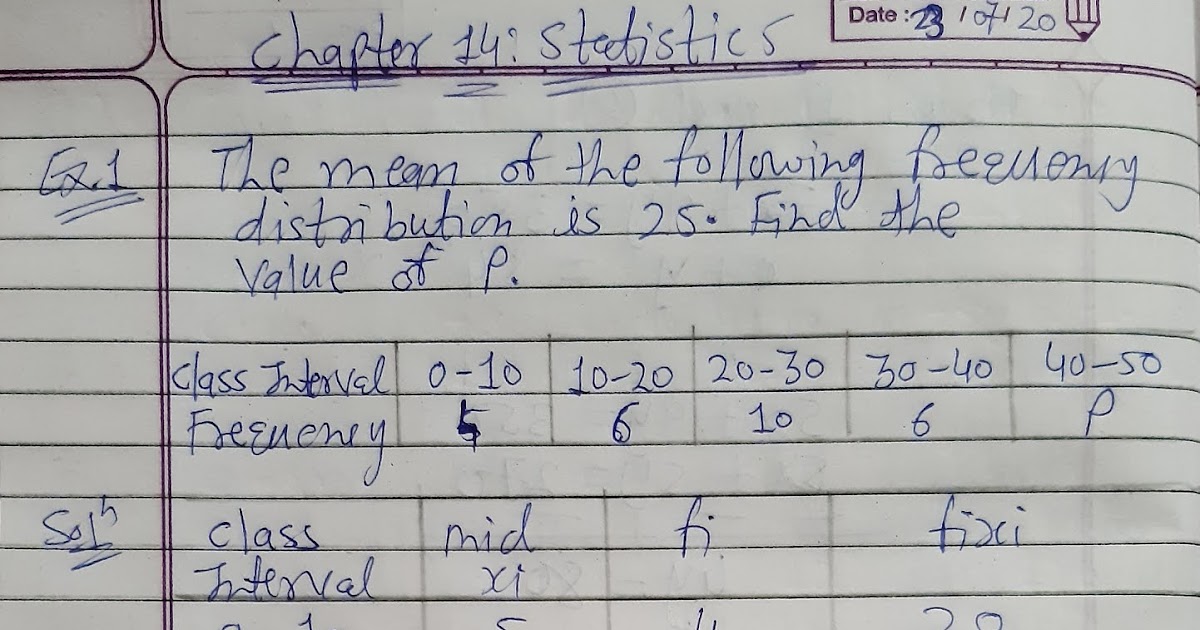 Date : 23 / 07 / 20
Chapter 14: Statistics
Ex.1 The mean of the following frequency
distribution is 25. Find the
value of P.
Class Interval 0-10 10-20 20-30 30-40 40-50
Frequency 6 10 6 P
Solⁿ Class mid fi fixi
Interval xi
5 20